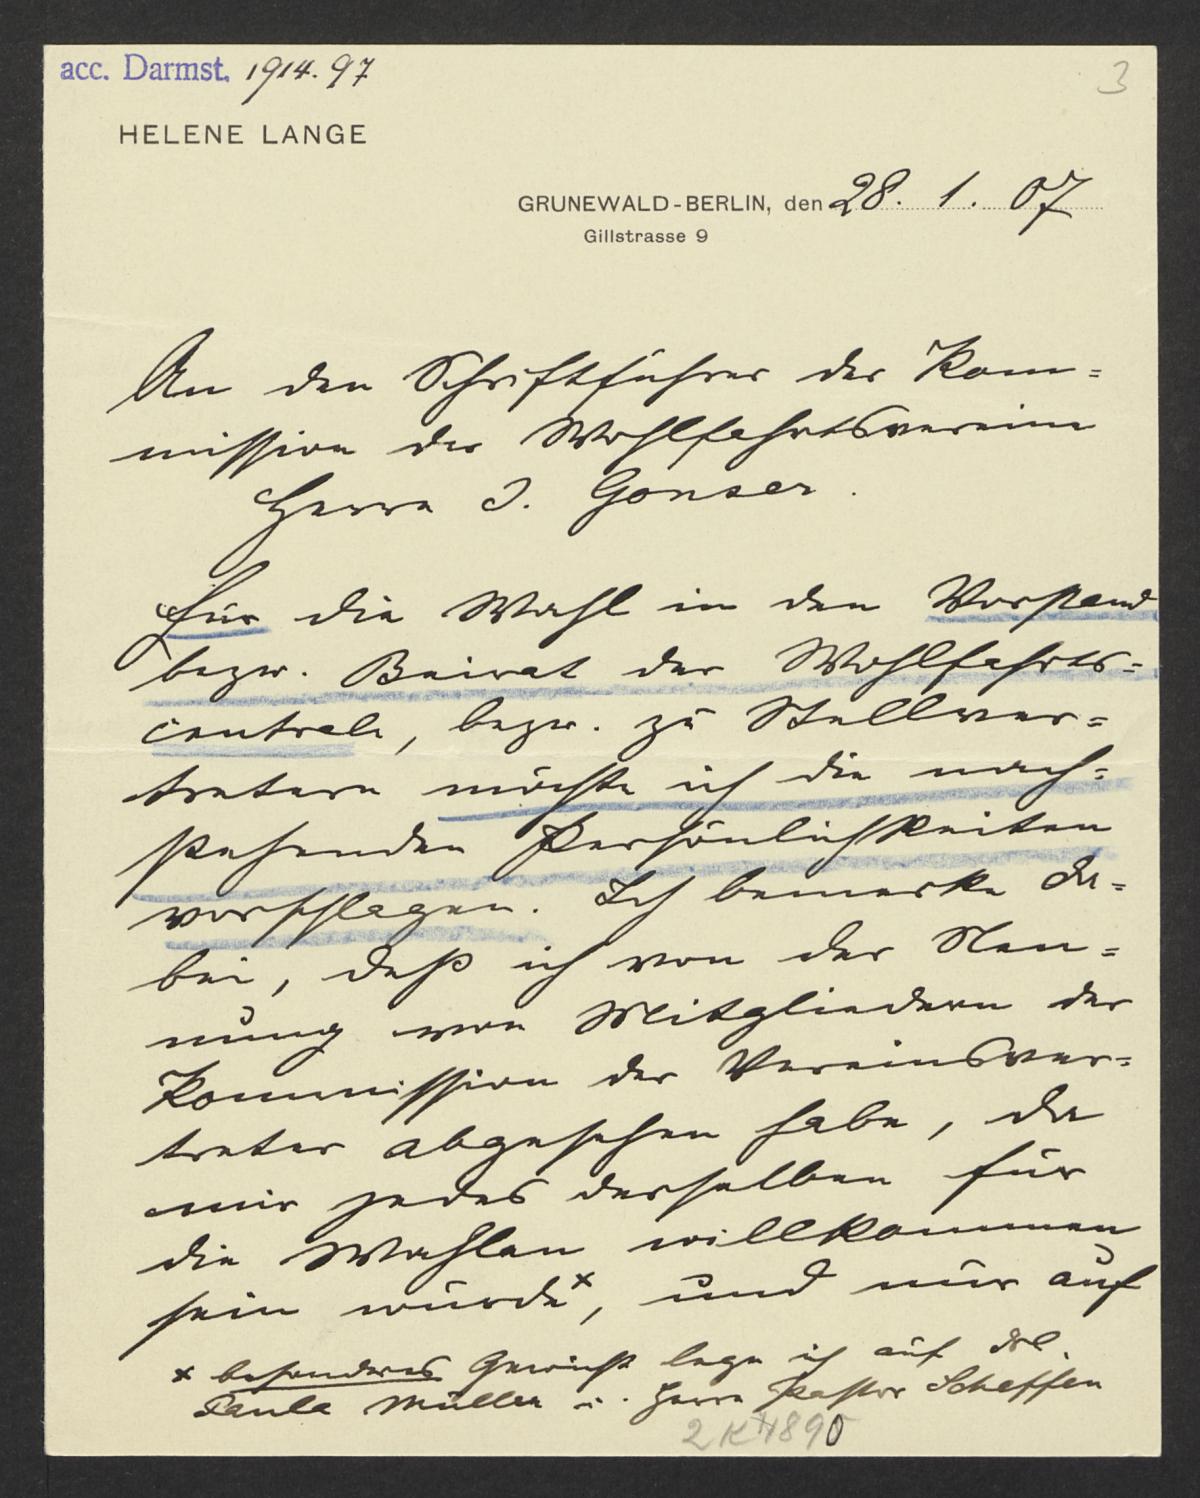 acc. Darmst. 1914.97
3
HELENE LANGE
GRUNEWALD-BERLIN, den 28. 1. 07
Gillstrasse 9
An den Schriftführer der Kom=
mission der Wohlfahrtsvereine
Herrn I. Gonser.
Für die Wahl in den Vorstand
bezw. Beirat der Wohlfahrts=
centrale, bezw. zu Stellver=
tretern möchte ich die nach=
stehenden Persönlichkeiten
vorschlagen. Ich bemerke da=
bei, daß ich von der Nen=
nung von Mitgliedern der
Kommission der Vereinsver=
treter abgesehen habe, da
mir jedes derselben für
die Wahlen willkommen
sein würde x, und nur auf
x besonderes Gewicht lege ich auf Frl.
Paula Müller u. Herrn Pastor Scheffen